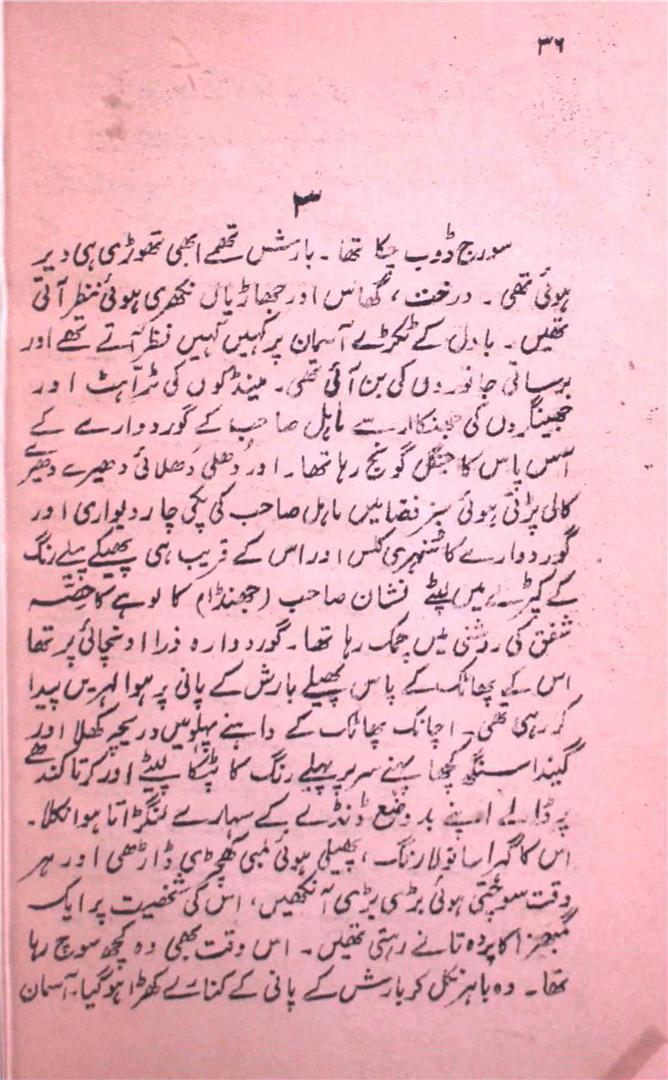 ۳۶
۳
سورج ڈوب چکا تھا ۔ بارش تھمے ابھی تھوڑی ہی دیر
ہوئی تھی ۔ درخت ، گھاس اور جھاڑیاں نکھری ہوئی نظر آتی
تھیں ۔ بادل کے ٹکڑے آسمان پر کہیں کہیں نظر آتے تھے اور
برساتی جانوروں کی بن آئی تھی ۔ مینڈکوں کی ٹراہٹ اور
جھینگروں کی جھنکار سے ماہل صاحب کے گوردوارے کے
آس پاس کا جنگل گونج رہا تھا ۔ اور دُھلی دُھلائی دھیرے دھیرے
کالی پڑتی ہوئی سبز فضا میں ماہل صاحب کی پکی چار دیواری اور
گوردوارے کا سنہری کلس اور اس کے قریب ہی پھیکے پیلے رنگ
کے کپڑے میں لپٹے نشان صاحب (جھنڈا) کا لوہے کا حصّہ
شفق کی روشنی میں چمک رہا تھا ۔ گوردوارہ ذرا اونچائی پر تھا
اس کے پھاٹک کے پاس پھیلے بارش کے پانی پر ہوا لہریں پیدا
کر رہی تھی ۔ اچانک پھاٹک کے داہنے پہلو میں دریچہ کھلا اور
گیندا سنگھ کچھا پہنے سر پر پیلے رنگ کا پٹکا لپیٹے اور کرتا کندھے
پر ڈالے اپنے بدوضع ڈنڈے کے سہارے لنگڑاتا ہوا نکلا ۔
اس کا گہرا سانولا رنگ ، پھیلی ہوئی لمبی کھچڑی ڈاڑھی اور ہر
وقت سوچتی ہوئی بڑی بڑی آنکھیں ، اس کی شخصیت پر ایک
کا پردہ تانے رہتی تھیں ۔ اس وقت بھی وہ کچھ سوچ رہا
تھا ۔ وہ باہر نکل کر بارش کے پانی کے کنارے کھڑا ہو گیا ۔ آسمان